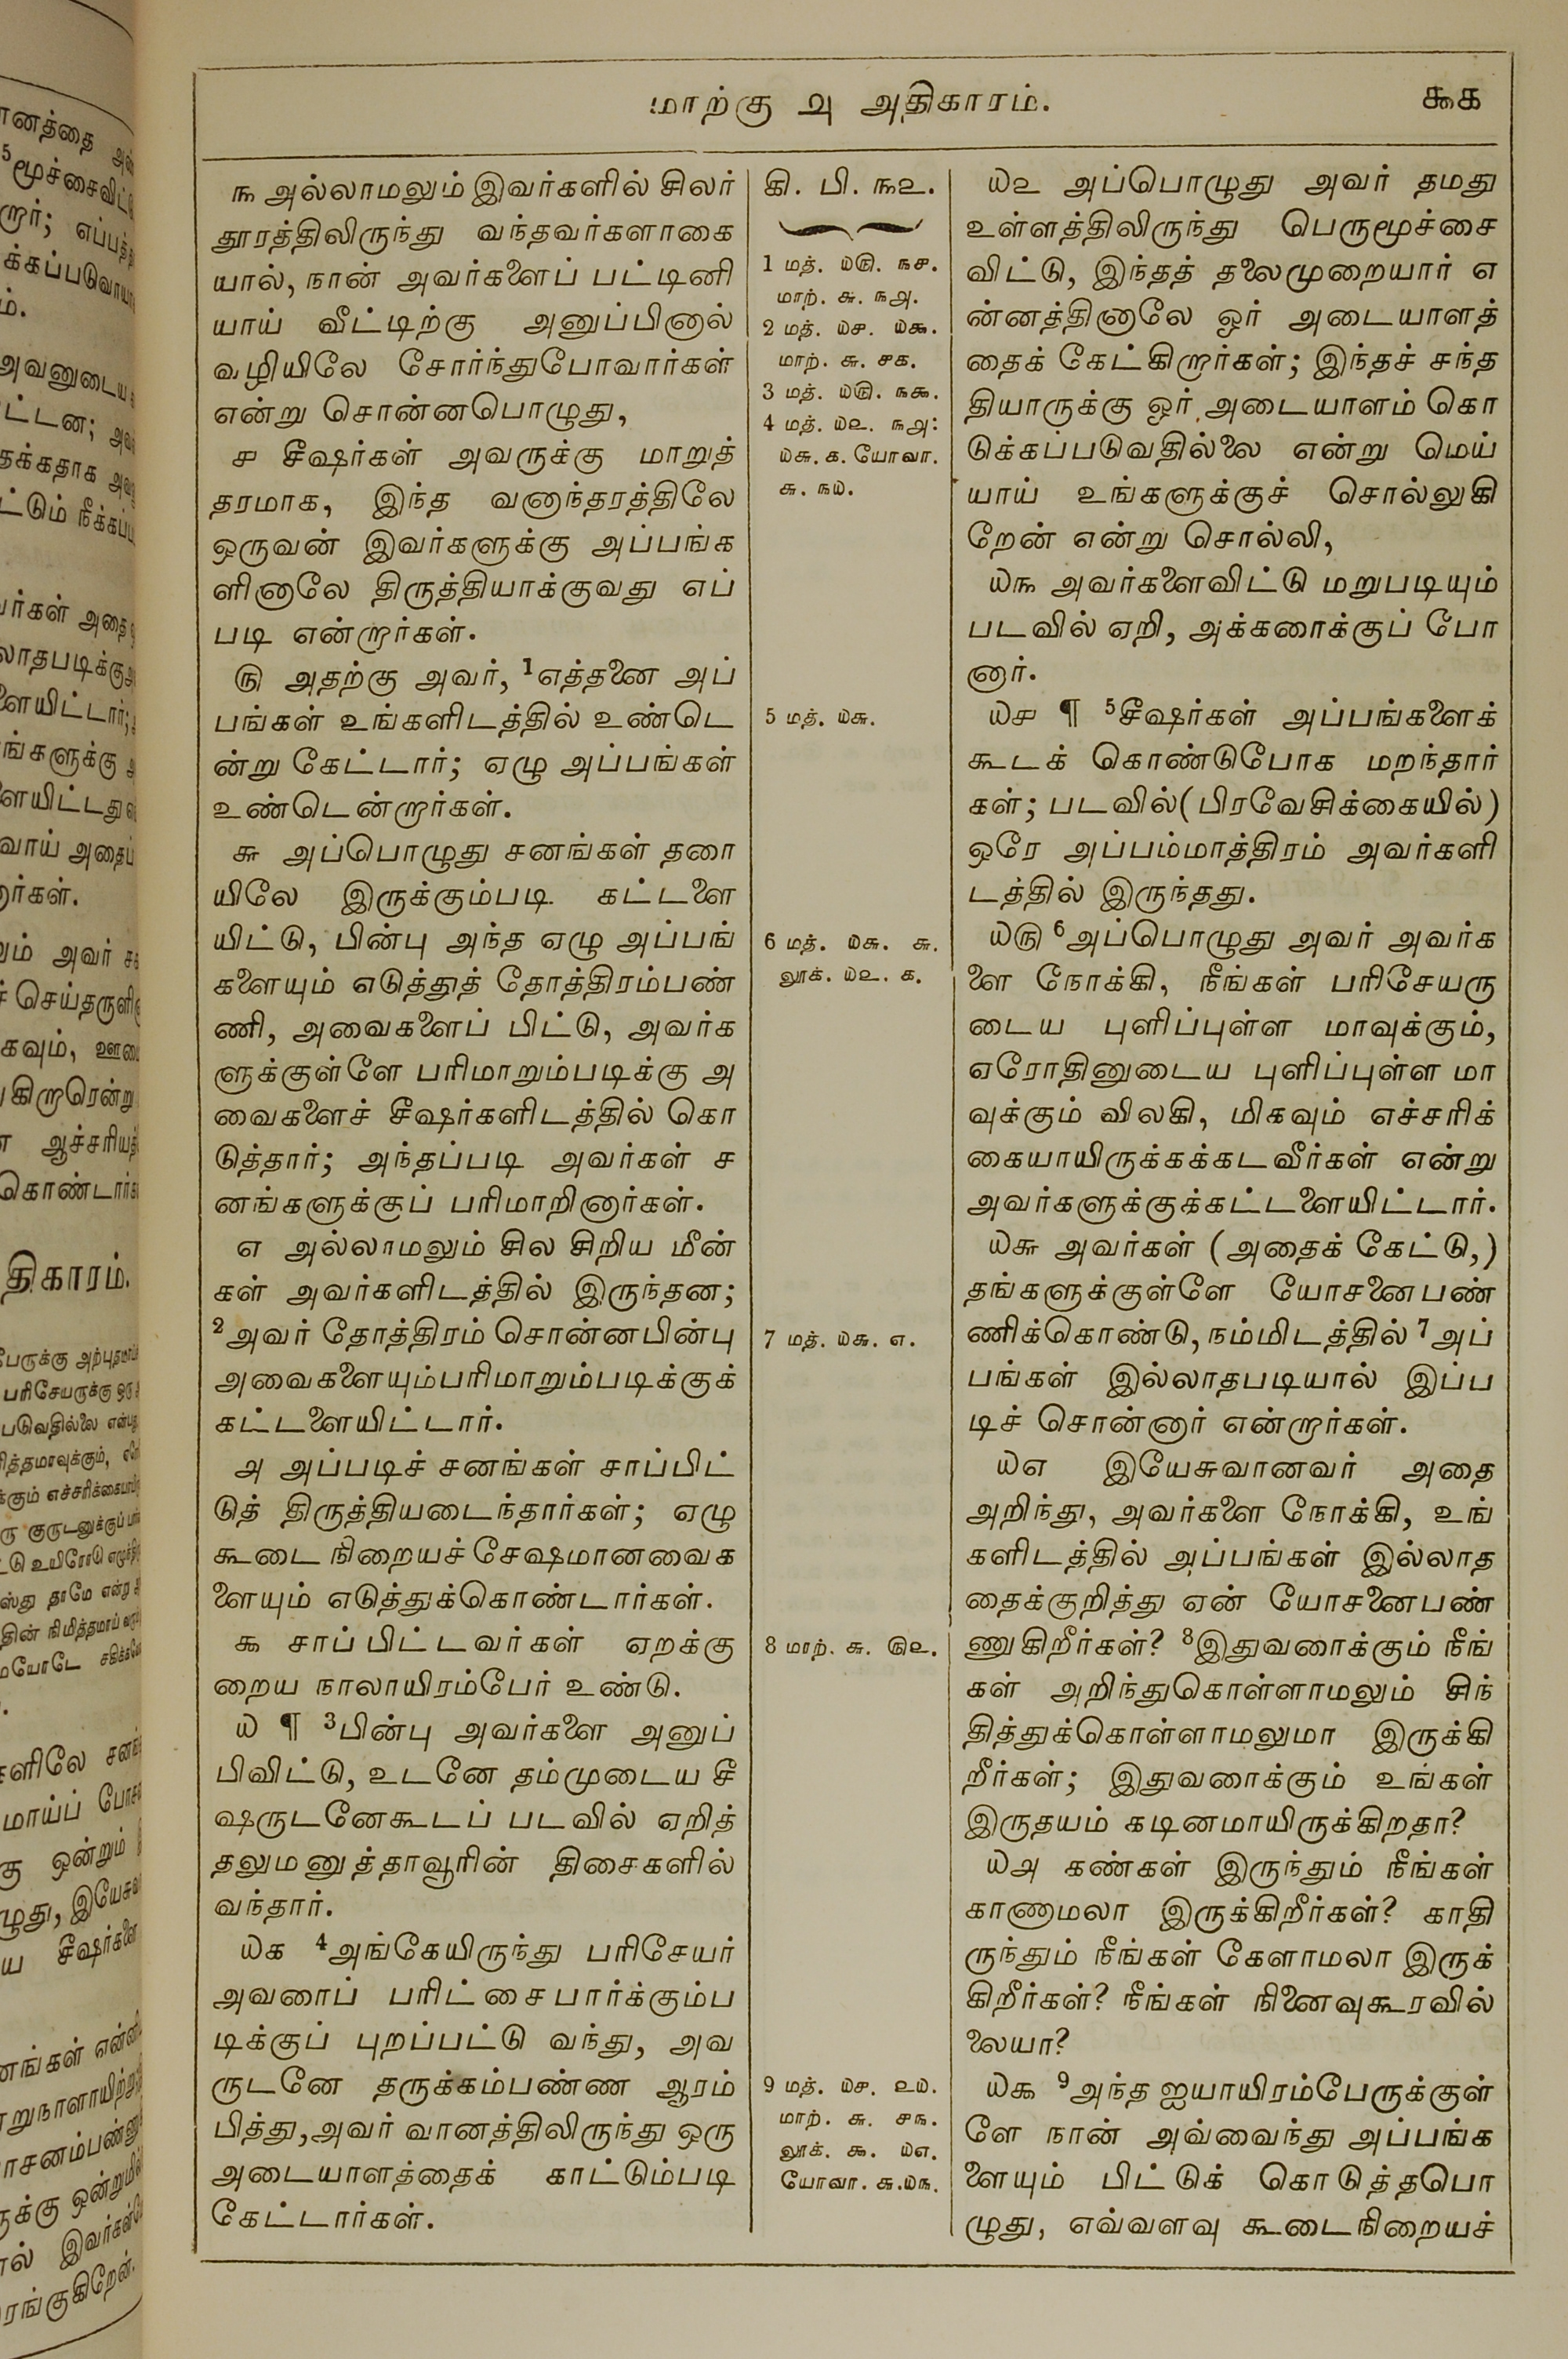 மாற்கு ௮ அதிகாரம்.
௬௧
௩ அல்லாமலும் இவர்களில் சிலர்
தூரத்திலிருந்து வந்தவர்களாகை
யால், நான் அவர்களைப் பட்டினி
யாய் வீட்டிற்கு அனுப்பினால்
வழியிலே சோர்ந்துபோவார்கள்
என்று சொன்னபொழுது,
௪ சீஷர்கள் அவருக்கு மாறுத்
தரமாக, இந்த வனாந்தரத்திலே
ஒருவன் இவர்களுக்கு அப்பங்க
ளினாலே திருத்தியாக்குவது எப்
படி என்றார்கள்.
௫ அதற்கு அவர், 1எத்தனை அப்
பங்கள் உங்களிடத்தில் உண்டெ
ன்று கேட்டார்; ஏழு அப்பங்கள்
உண்டென்றார்கள்.
௬ அப்பொழுது சனங்கள் தரை
யிலே இருக்கும்படி கட்டளை
யிட்டு, பின்பு அந்த ஏழு அப்பங்
களையும் எடுத்துத் தோத்திரம்பண்
ணி, அவைகளைப் பிட்டு, அவர்க
ளுக்குள்ளே பரிமாறும்படிக்கு அ
வைகளைச் சீஷர்களிடத்தில் கொ
டுத்தார்; அந்தப்படி அவர்கள் ச
னங்களுக்குப் பரிமாறினார்கள்.
௭ அல்லாமலும் சில சிறிய மீன்
கள் அவர்களிடத்தில் இருந்தன;
2அவர் தோத்திரம் சொன்னபின்பு
அவைகளையும்பரிமாறும்படிக்குக்
கட்டளையிட்டார்.
௮ அப்படிச் சனங்கள் சாப்பிட்
டுத் திருத்தியடைந்தார்கள்; ஏழு
கூடை நிறையச் சேஷமானவைக
ளையும் எடுத்துக்கொண்டார்கள்.
௯ சாப்பிட்டவர்கள் ஏறக்கு
றைய நாலாயிரம்பேர் உண்டு.
௰ ¶ 3பின்பு அவர்களை அனுப்
பிவிட்டு, உடனே தம்முடைய சீ
ஷருடனேகூடப் படவில் ஏறித்
தலுமனுத்தாவூரின் திசைகளில்
வந்தார்.
௰௧ 4அங்கேயிருந்து பரிசேயர்
அவரைப் பரிட்சைபார்க்கும்ப
டிக்குப் புறப்பட்டு வந்து, அவ
ருடனே தருக்கம்பண்ண ஆரம்
பித்து,அவர் வானத்திலிருந்து ஒரு
அடையாளத்தைக் காட்டும்படி
கேட்டார்கள்.
கி. பி. ௩௨.
1 மத். ௰௫. ௩௪.
மாற். ௬. ௩௮.
2 மத். ௰௪. ௰௯.
மாற். ௬. ௪௧.
3 மத். ௰௫. ௩௯.
4 மத். ௰௨. ௩௮:
௰௬.௧. யோவா.
௬. ௩௰.
5 மத். ௰௬.
6 மத். ௰௬. ௬.
லூக். ௰௨. ௧.
7 மத். ௰௬. ௭.
8 மாற். ௬. ௫௨.
9 மத். ௰௪. ௨௰.
மாற். ௬. ௪௩.
லூக். ௯. ௰௭.
யோவா. ௬.௰௩.
௰௨ அப்பொழுது அவர் தமது
உள்ளத்திலிருந்து பெருமூச்சை
விட்டு, இந்தத் தலைமுறையார் எ
ன்னத்தினாலே ஓர் அடையாளத்
தைக் கேட்கிறார்கள்; இந்தச் சந்த
தியாருக்கு ஓர் அடையாளம் கொ
டுக்கப்படுவதில்லை என்று மெய்
யாய் உங்களுக்குச் சொல்லுகி
றேன் என்று சொல்லி,
௰௩ அவர்களைவிட்டு மறுபடியும்
படவில் ஏறி, அக்கரைக்குப் போ
னார்.
௰௪ ¶ 5சீஷர்கள் அப்பங்களைக்
கூடக் கொண்டுபோக மறந்தார்
கள்; படவில்(பிரவேசிக்கையில்)
ஒரே அப்பம்மாத்திரம் அவர்களி
டத்தில் இருந்தது.
௰௫ 6அப்பொழுது அவர் அவர்க
ளை நோக்கி, நீங்கள் பரிசேயரு
டைய புளிப்புள்ள மாவுக்கும்,
ஏரோதினுடைய புளிப்புள்ள மா
வுக்கும் விலகி, மிகவும் எச்சரிக்
கையாயிருக்கக்கடவீர்கள் என்று
அவர்களுக்குக்கட்டளையிட்டார்.
௰௬ அவர்கள் (அதைக் கேட்டு,)
தங்களுக்குள்ளே யோசனைபண்
ணிக்கொண்டு,நம்மிடத்தில் 7அப்
பங்கள் இல்லாதபடியால் இப்ப
டிச் சொன்னார் என்றார்கள்.
௰௭ இயேசுவானவர் அதை
அறிந்து, அவர்களை நோக்கி, உங்
களிடத்தில் அப்பங்கள் இல்லாத
தைக்குறித்து ஏன் யோசனைபண்
ணுகிறீர்கள்? 8இதுவரைக்கும் நீங்
கள் அறிந்துகொள்ளாமலும் சிந்
தித்துக்கொள்ளாமலுமா இருக்கி
றீர்கள்; இதுவரைக்கும் உங்கள்
இருதயம் கடினமாயிருக்கிறதா?
௰௮ கண்கள் இருந்தும் நீங்கள்
காணாமலா இருக்கிறீர்கள்? காதி
ருந்தும் நீங்கள் கேளாமலா இருக்
கிறீர்கள்? நீங்கள் நினைவுகூரவில்
லையா?
௰௯ 9அந்த ஐயாயிரம்பேருக்குள்
ளே நான் அவ்வைந்து அப்பங்க
ளையும் பிட்டுக் கொடுத்தபொ
ழுது, எவ்வளவு கூடைநிறையச்